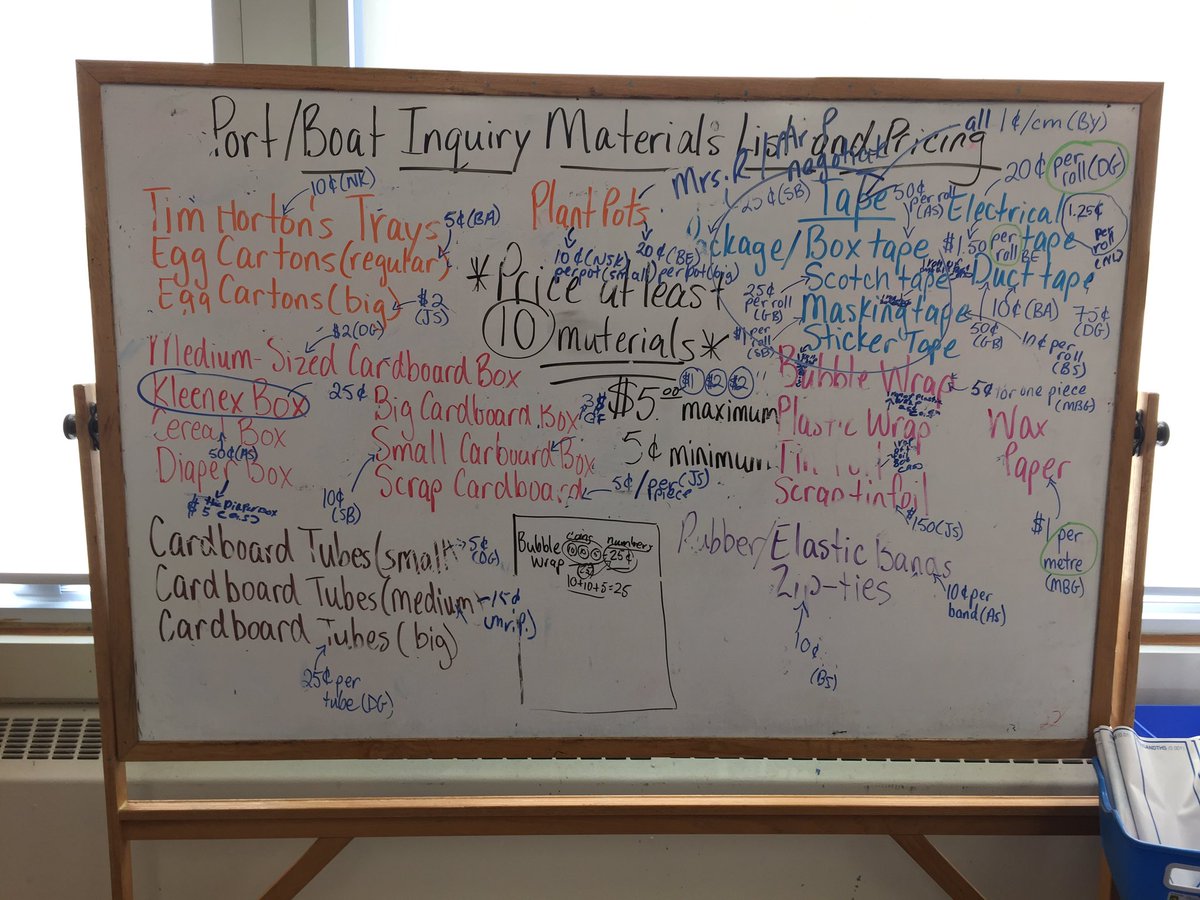 Port/Boat Inquiry Materials List and Pricing
all 1¢/cm (BY)
Mrs. R
negotiate
10¢ (NK)
Tim Horton's Trays
5¢ (BA)
Egg Cartons (regular)
Egg Cartons (big)
$2 (JS)
Plant Pots
10¢ (NSK) per pot (small)
20¢ (BE) per pot (big)
*Price at least
10 materials*
$5.00 maximum
$1 $2 $2
5¢ minimum
25¢ (SB)
Tape
50¢ per roll (AS)
20¢ per roll (DG)
Electrical tape
1.25¢ per roll (NL)
Package/Box tape
$1.50 per roll BE
Scotch tape
Duct tape
25¢ per roll (GB)
Masking tape
10¢ (BA)
75¢ (DG)
50¢ (GB)
10¢ per roll (BS)
$1 per roll (SB)
Sticker Tape
$2 (DG)
Medium-Sized Cardboard Box
Kleenex Box
25¢
Big Cardboard Box
Cereal Box
50¢ (AS)
Small Carboard Box
Diaper Box
10¢ (SB)
Scrap Cardboard
5¢/per piece (JS)
Bubble Wrap
5¢ for one piece (MBG)
Plastic Wrap
Wax Paper
$1 per metre (MBG)
Tin Foil
Scrap tinfoil
$150 (JS)
Cardboard Tubes (small)
5¢ (DG)
Cardboard Tubes (medium)
15¢
Cardboard Tubes (big)
25¢ per tube (DG)
coins numbers
Bubble Wrap
10 10 5 = 25¢
10+10+5=25
Rubber/Elastic Bands
10¢ per band (AS)
Zip-ties
10¢ (BS)